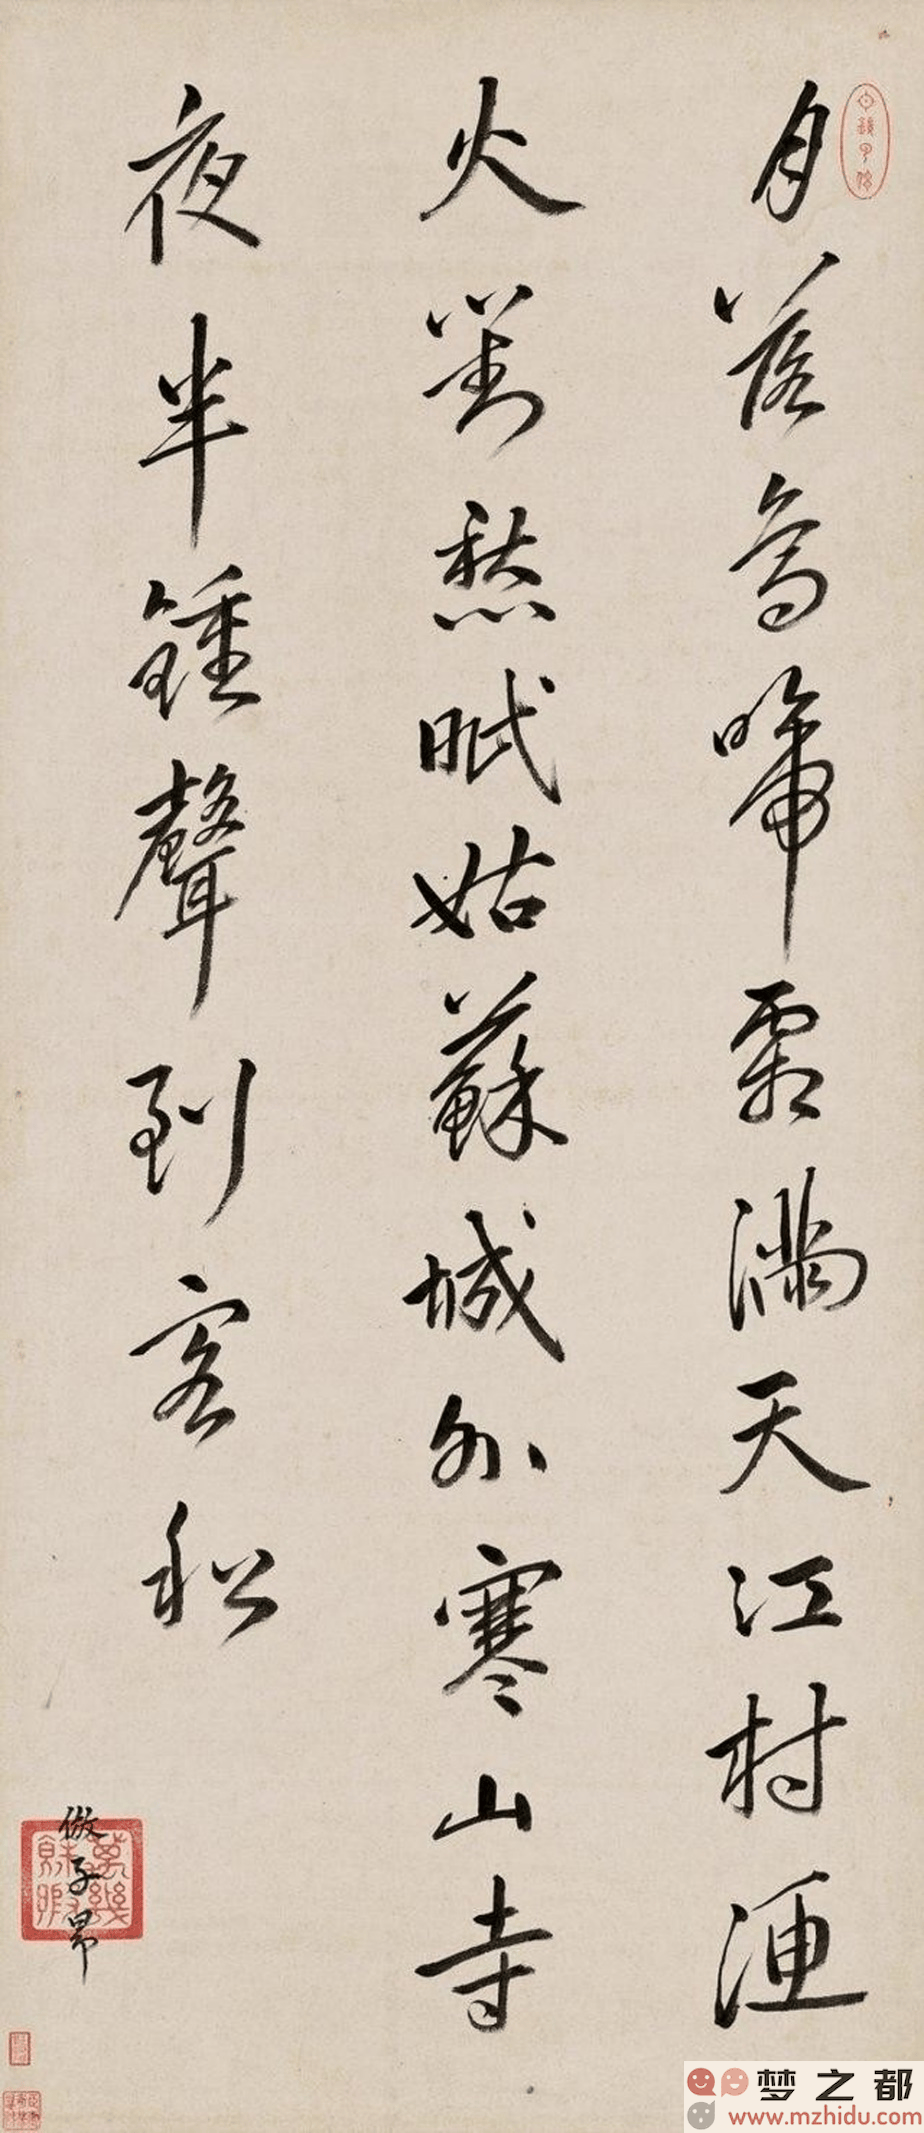 月落烏啼霜滿天江村漁
火對愁眠姑蘇城外寒山寺
夜半鍾聲到客舩
倣子昂
萬幾餘暇
梦之都
www.mzhidu.com